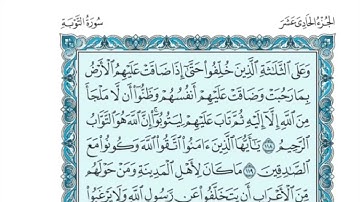 الجزء الحادي عشر سورة التوبة
وَعَلَى ٱلثَّلَٰثَةِ ٱلَّذِينَ خُلِّفُوا۟ حَتَّىٰٓ إِذَا ضَاقَتْ عَلَيْهِمُ ٱلْأَرْضُ
بِمَا رَحُبَتْ وَضَاقَتْ عَلَيْهِمْ أَنفُسُهُمْ وَظَنُّوٓا۟ أَن لَّا مَلْجَأَ
مِنَ ٱللَّهِ إِلَّآ إِلَيْهِ ثُمَّ تَابَ عَلَيْهِمْ لِيَتُوبُوٓا۟ إِنَّ ٱللَّهَ هُوَ ٱلتَّوَّابُ
ٱلرَّحِيمُ ١١٨ يَٰٓأَيُّهَا ٱلَّذِينَ ءَامَنُوا۟ ٱتَّقُوا۟ ٱللَّهَ وَكُونُوا۟ مَعَ
ٱلصَّٰدِقِينَ ١١٩ مَا كَانَ لِأَهْلِ ٱلْمَدِينَةِ وَمَنْ حَوْلَهُم
مِّنَ ٱلْأَعْرَابِ أَن يَتَخَلَّفُوا۟ عَن رَّسُولِ ٱللَّهِ وَلَا يَرْغَبُوا۟